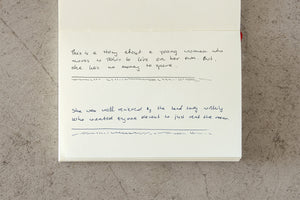 This is a story about a young woman who
moves to Paris to live on her own. But
she has no money to spare.
She was well received by the land lady
who wanted anyone decent to just rent the room.